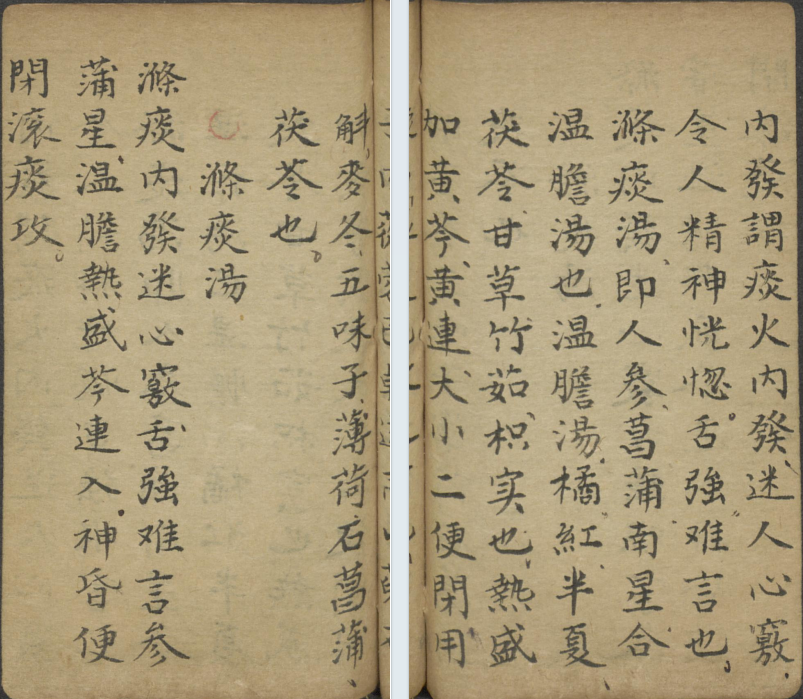 內發謂痰火內發迷人心竅
令人精神恍惚舌強难言也
滌痰湯即人參菖蒲南星合
温膽湯也温膽湯橘紅半夏
茯苓甘草竹茹枳实也熱盛
加黄芩黄連大小二便閉用
解麥冬五味子薄荷石菖蒲
茯苓也
滌痰湯
滌痰內發迷心竅舌強难言參
蒲星温膽熱盛芩連入神昏便
閉滾痰攻